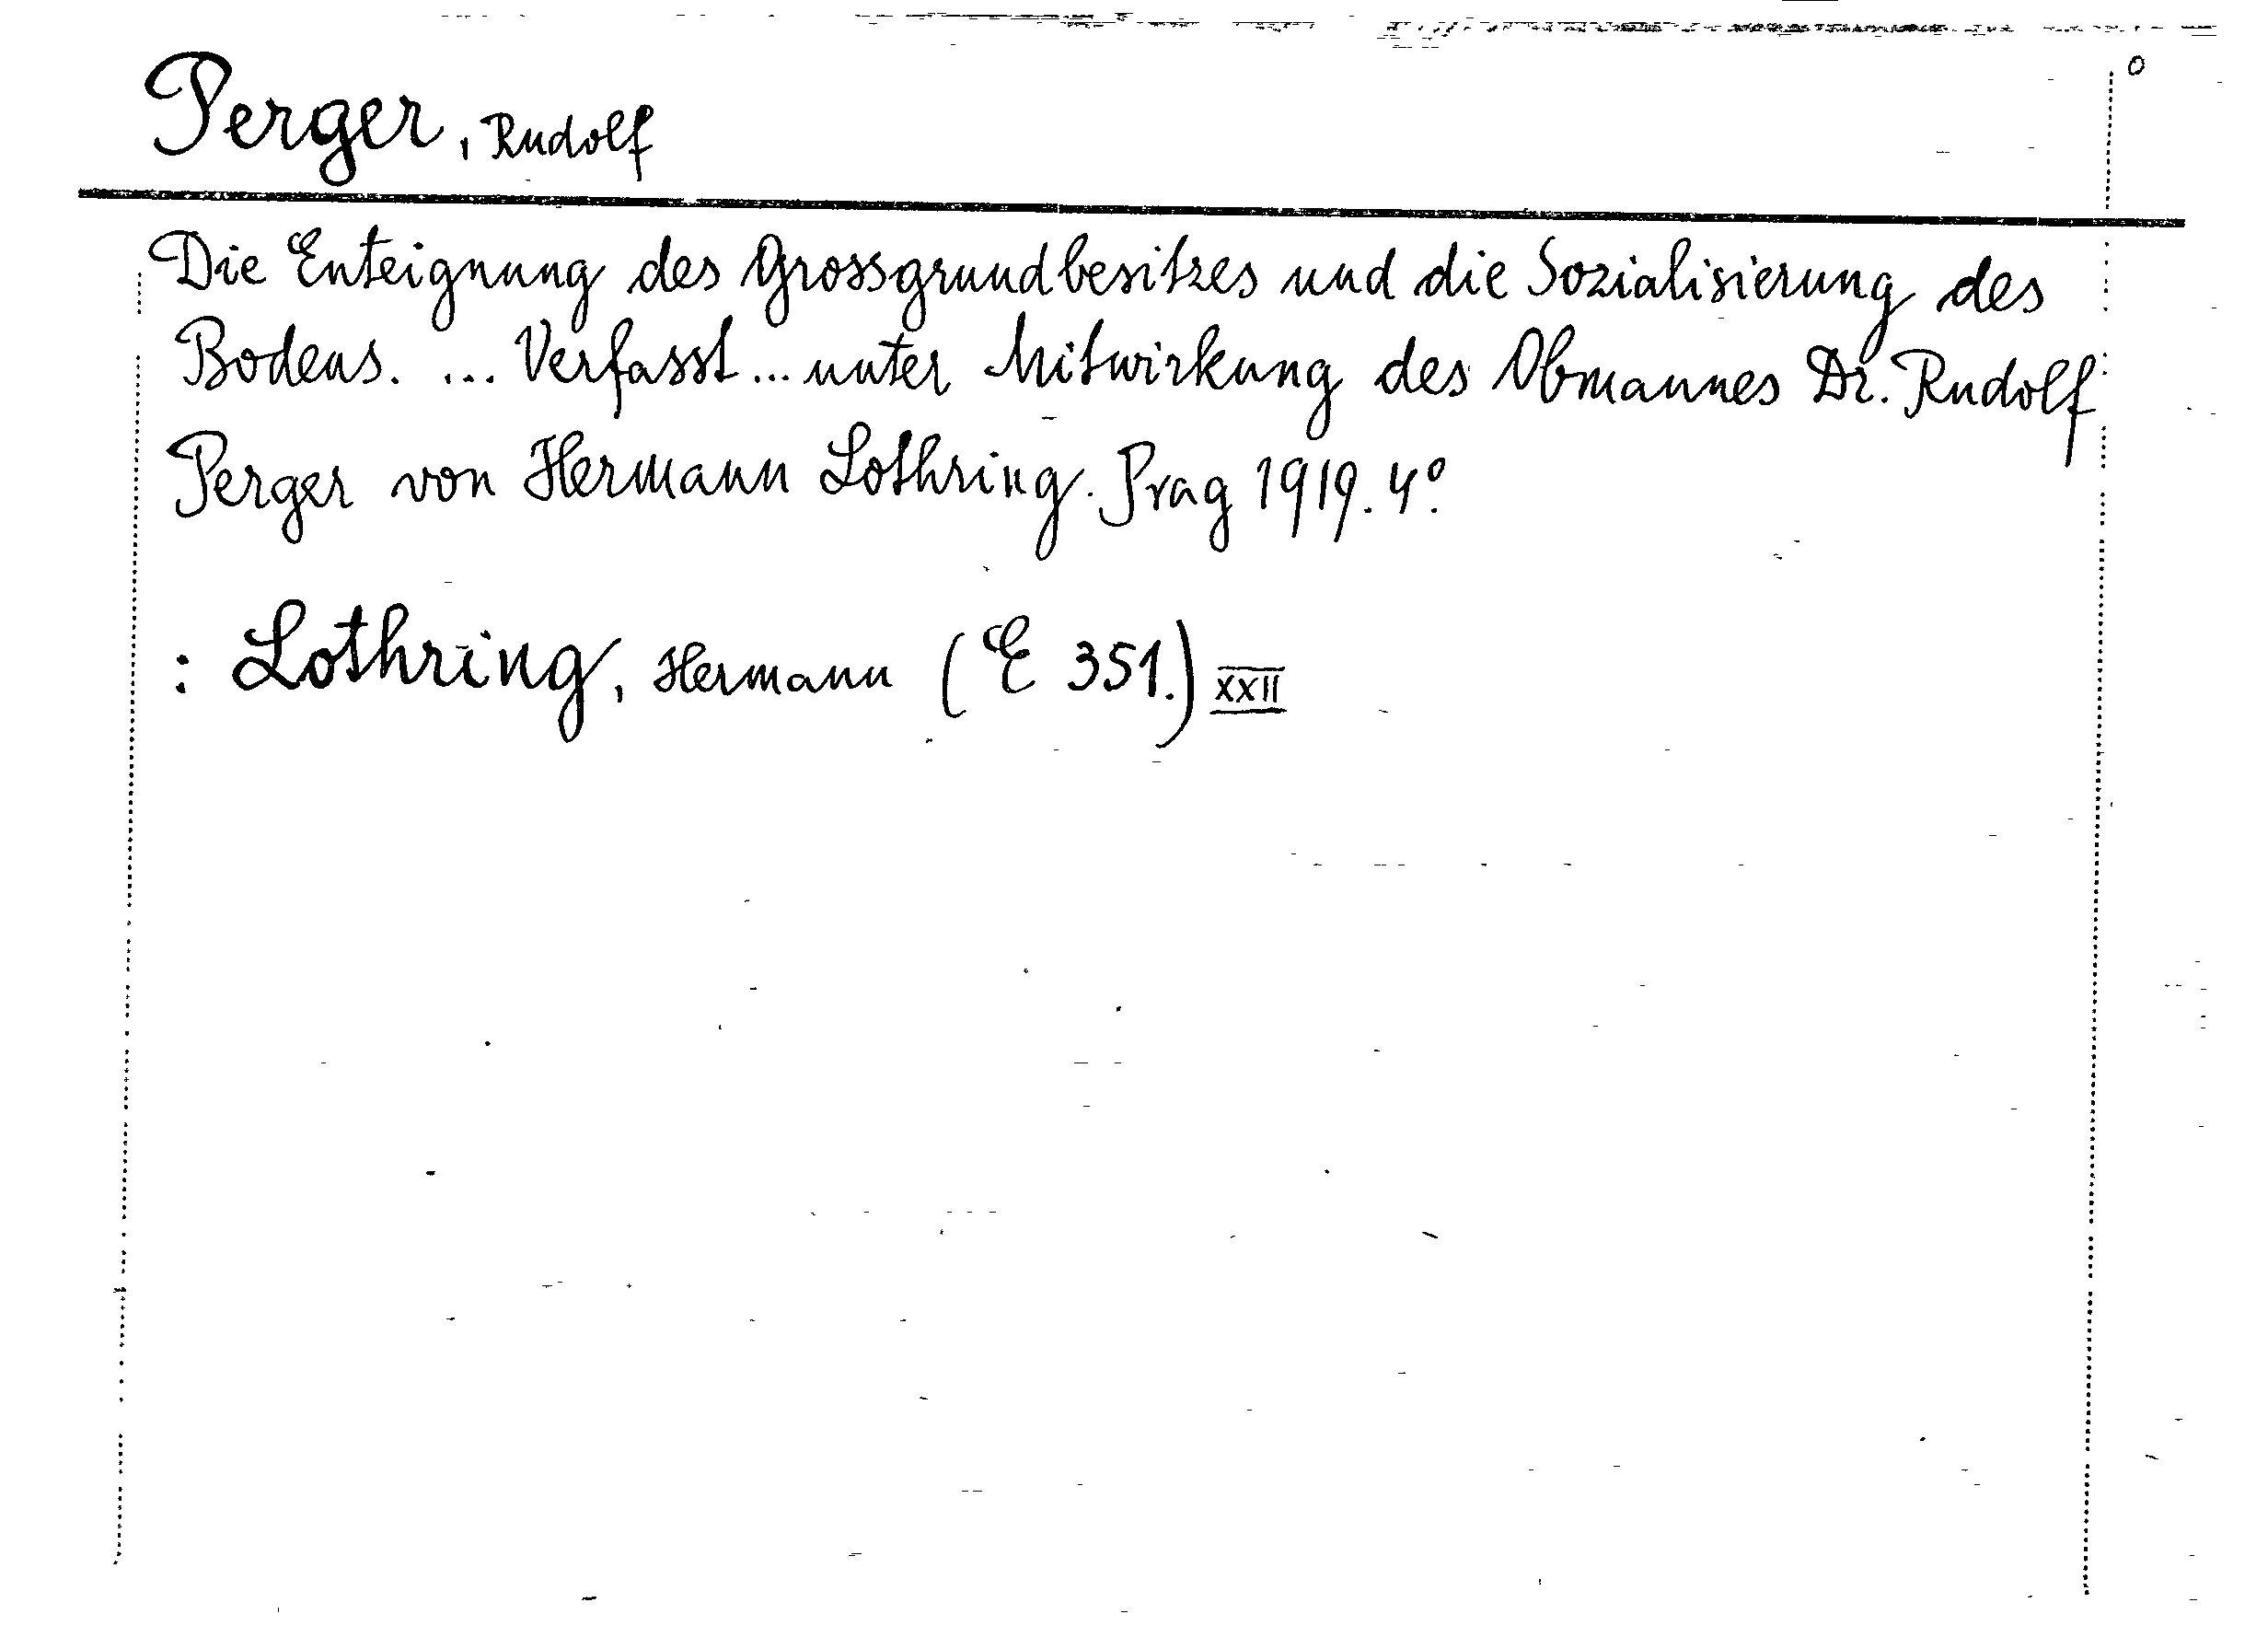 Perger, Rudolf
o
Die Enteignung des Grossgrundbesitzes und die Sozialisierung des
Bodens. ... Verfasst ... unter Mitwirkung des Obmannes Dr. Rudolf
Perger von Hermann Lothring. Prag 1919. 4°.
: Lothring, Hermann (E 351.) XXII